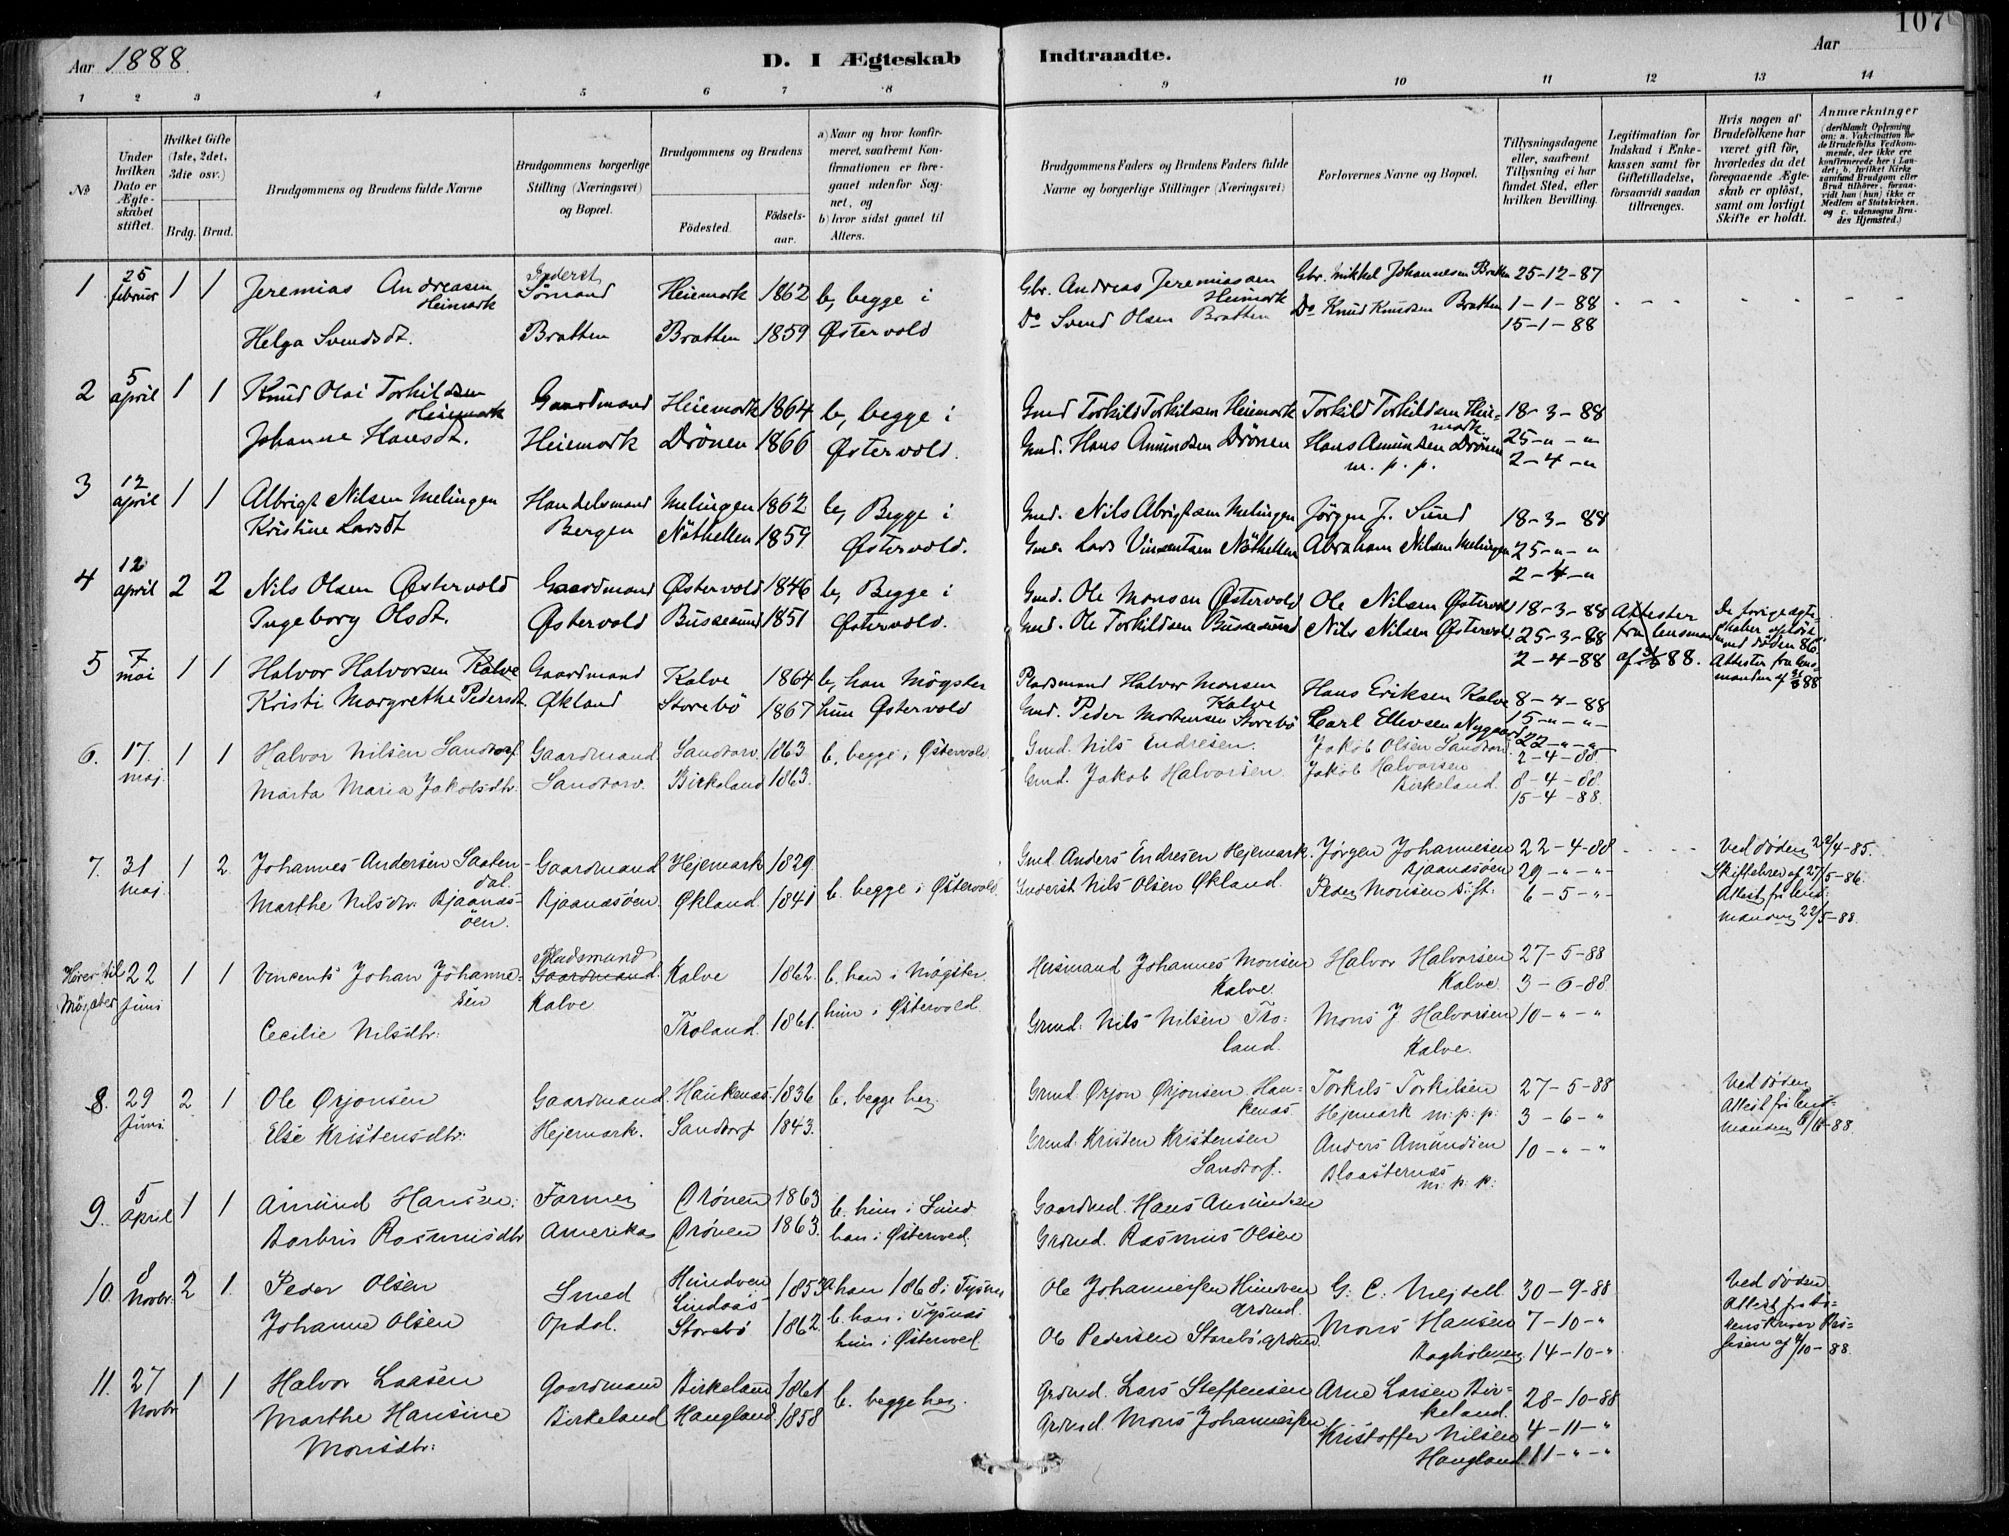 107
Aar 1888
D. I Ægteskab Indtraadte.
Aar
1 2 3 4 5 6 7 8 9 10 11 12 13 14
No
Under hvilken Dato er Ægteskabet stiftet.
Hvilket Gifte (1ste, 2det, 3die osv.)
Brdg. Brud.
Brudgommens og Brudens fulde Navne
Brudgommens borgerlige Stilling (Næringsvei) og Bopæl.
Brudgommens og Brudens
Födested.
Födselsaar.
a) Naar og hvor konfirmeret, saafremt Konfirmationen er foregaaet udenfor Sognet, og
b) hvor sidst gaaet til Alters.
Brudgommens Faders og Brudens Faders fulde Navne og borgerlige Stillinger (Næringsvei)
Forlovernes Navne og Bopæl.
Tillysningsdagene eller, saafremt Tillysning ei har fundet Sted, efter hvilken Bevilling.
Legitimation for Indskud i Enkekassen samt for Giftetilladelse, forsaavidt saadan tiltrænges.
Hvis nogen af Brudefolkene har været gift för, hvorledes da det foregaaende Ægteskab er oplöst, samt om lovligt Skifte er holdt.
Anmærkninger
(deriblandt Oplysning om: a. Vakcination for de Brudefolks Vedkommende, der ikke ere konfirmerede her i Landet; b. hvilket Kirkesamfund Brudgom eller Brud tilhörer, forsaavidt han (hun) ikke er Medlem af Statskirken, og c. udensogns Brudes Hjemsted.)
1 25 februar 1 1 Jeremias Andreasen Heimark Sömand Heiemark 1862 b, begge i Gbr. Andreas Jeremiassen Heimark Gbr. Mikkel Johannesen Bratten 25-12-87
Helga Svendsdt. Bratten Bratten 1859 Østervold Do Svend Olsen Bratten Do Knud Knudsen Bratten 1-1-88
15-1-88
2 5 april 1 1 Knud Olai Torkildsen Heiemark Gaardmand Heiemark 1864 b, begge i Gmd Torkild Torkildsen Heiemark Torkild Torkildsen Heiemark 18-3-88
Johanne Hansdt. Heiemark Drönen 1866 Østervold. Gmd. Hans Amundsen Drönen Hans Amundsen Drönen m. p. p. 25-"-"
2-4-"
3 12 april 1 1 Albrigt Nilsen Melingen Handelsmand Melingen 1862 b, Begge i Gmd. Nils Abrigtsen Melingen Jörgen J. Sund 18-3-88
Kristine Larsdt Bergen Nöthellen 1859 Østervold. Gmd. Lars Vinsentsen Nöthellen Abraham Nilsen Melingen 25-"-"
2-4-"
4 12 april 2 2 Nils Olsen Østervold Gaardmand Østervold 1846 b, Begge i Gmd. Ole Monsen Østervold Ole Nilsen Østervold 18-3-88 Attester De forige ægteskaber oplöst
Ingeborg Olsdt. Østervold Bussesund 1851 Østervold. Gmd. Ole Torkildsen Bussesund Nils Nilsen Østervold 25-3-88 fra lensmand ved döden 86.
2-4-88 Attester fra lensmanden
5 7 mai 1 1 Halvor Halvorsen Kalve Gaardmand Kalve 1864 b, han Møgster Pladsmand Halvor Monsen Kalve Hans Eriksen Kalve 8-4-88
Kristi Margrethe Pedersdt. Økland Storebö 1867 hun Østervold Gmd. Peder Mortensen Storebö Carl Ellevsen Nygaard 15-"-"-
22-"-"-
6. 17. maj. 1 1 Halvor Nilsen Sandtorf Gaardmand Sandtorv. 1863. b. begge i Østervold. Gmd. Nils Endresen. Jakob Olsen Sandtorv. 2-4-88.
Marta Maria Jakobsdtr. Sandtorv. Birkeland 1863. Gmd. Jakob Halvorsen. Jakob Halvorsen Birkeland. 8-4-88.
15-4-88.
7. 31 maj. 1 2. Johannes Andersen Saatendal. Gaardmand Hejemark 1829. b. begge i Østervold. Gmd. Anders Endresen Hejemark. Jørgen Johannesen Bjaanæsöen 22-4-88 Ved døden 22/4-85.
Marthe Nilsdtr. Bjaanæsöen. Bjaanæsöen. Økland. 1841 Nils Olsen Økland. Peder Monsen s. st. 29-"-"- Skiftebrev af 27/5-86.
6-5-"- Attest fra lensmanden 22/5-88.
Hører til Møgster 22 Juni 1 1 Vincents Johan Johannesen Pladsmand Gaardmand. Kalve 1862. b. han i Møgster. Husmand Johannes Monsen Kalve. Halvor Halvorsen Kalve. 27-5-88
Kalve 3-6-88
Cecilie Nilsdtr. Troland. 1861. hun i Østervold. Grmd. Nils Nilsen Troland. Mons J Halvorsen Kalve. 10-"-"
8. 29 Juni. 2 1 Ole Ørjonsen Gaardmand. Haukenæs. 1836 b. begge her. Grmd. Ørjon Ørjonsen Haukenæs. Torkels Torkilsen Hejemark m: p: p: 27-5-88 Ved døden
Else Kristensdtr. Hejemark. Sandtorf 1843. Grmd. Kristen Kristensen Sandtorf. Anders Amundsen m: p: p: 3-6-" Attest fra lensmanden
10-"-"
9. 5 april 1 1 Amund Hansen. Farmer Drönen 1863 b. hun i Sund Gaardmd. Hans Amundsen
Barbris Rasmusdtr Amerika Drönen 1863. han i Østervold Grdmd. Rasmus Olsen
10. 8 Novbr. 2 1. Peder Olsen Smed Hundven Lindaas 1853 a. han 1868 i Tysnes Ole Johannessen Hundven Grdmd. 30-9-88 Ved døden.
Johanne Olsen Opdal. Storebö 1862. b. han i Tysnæs Ole Pedersen Storebö. Grdmd. Mons Hansen Bagholmen. 7-10-"
hun i Østervold 14-10-"
11. 27 Novbr 1 1 Halvor Larsen Gaardmand Birkeland 1861 b. begge her. Grdmd. Lars Steffensen Arne Larsen Birkeland. 28-10-88
Marthe Hansine Monsdtr: Birkeland Haugland 1858 Grdmd. Mons Johannessen Kristoffer Nilsen Haugland. 4-11-"
11-"-"